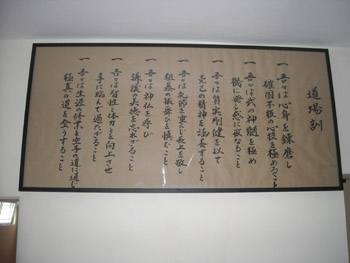 道場訓
一 吾々は心身を錬磨し
確固不抜の心技を極めること
一 吾々は武の神髄を極め
機に発し感に敏なること
一 吾々は質実剛健を以て
克己の精神を涵養すること
一 吾々は礼節を重んじ長上を敬し
粗暴の振舞いを慎むこと
一 吾々は神仏を尊び
謙譲の美徳を忘れざること
一 吾々は智性と体力とを向上させ
事に臨んで過たざること
一 吾々は生涯の修業を空手の道に通じ
極真の道を全うすること